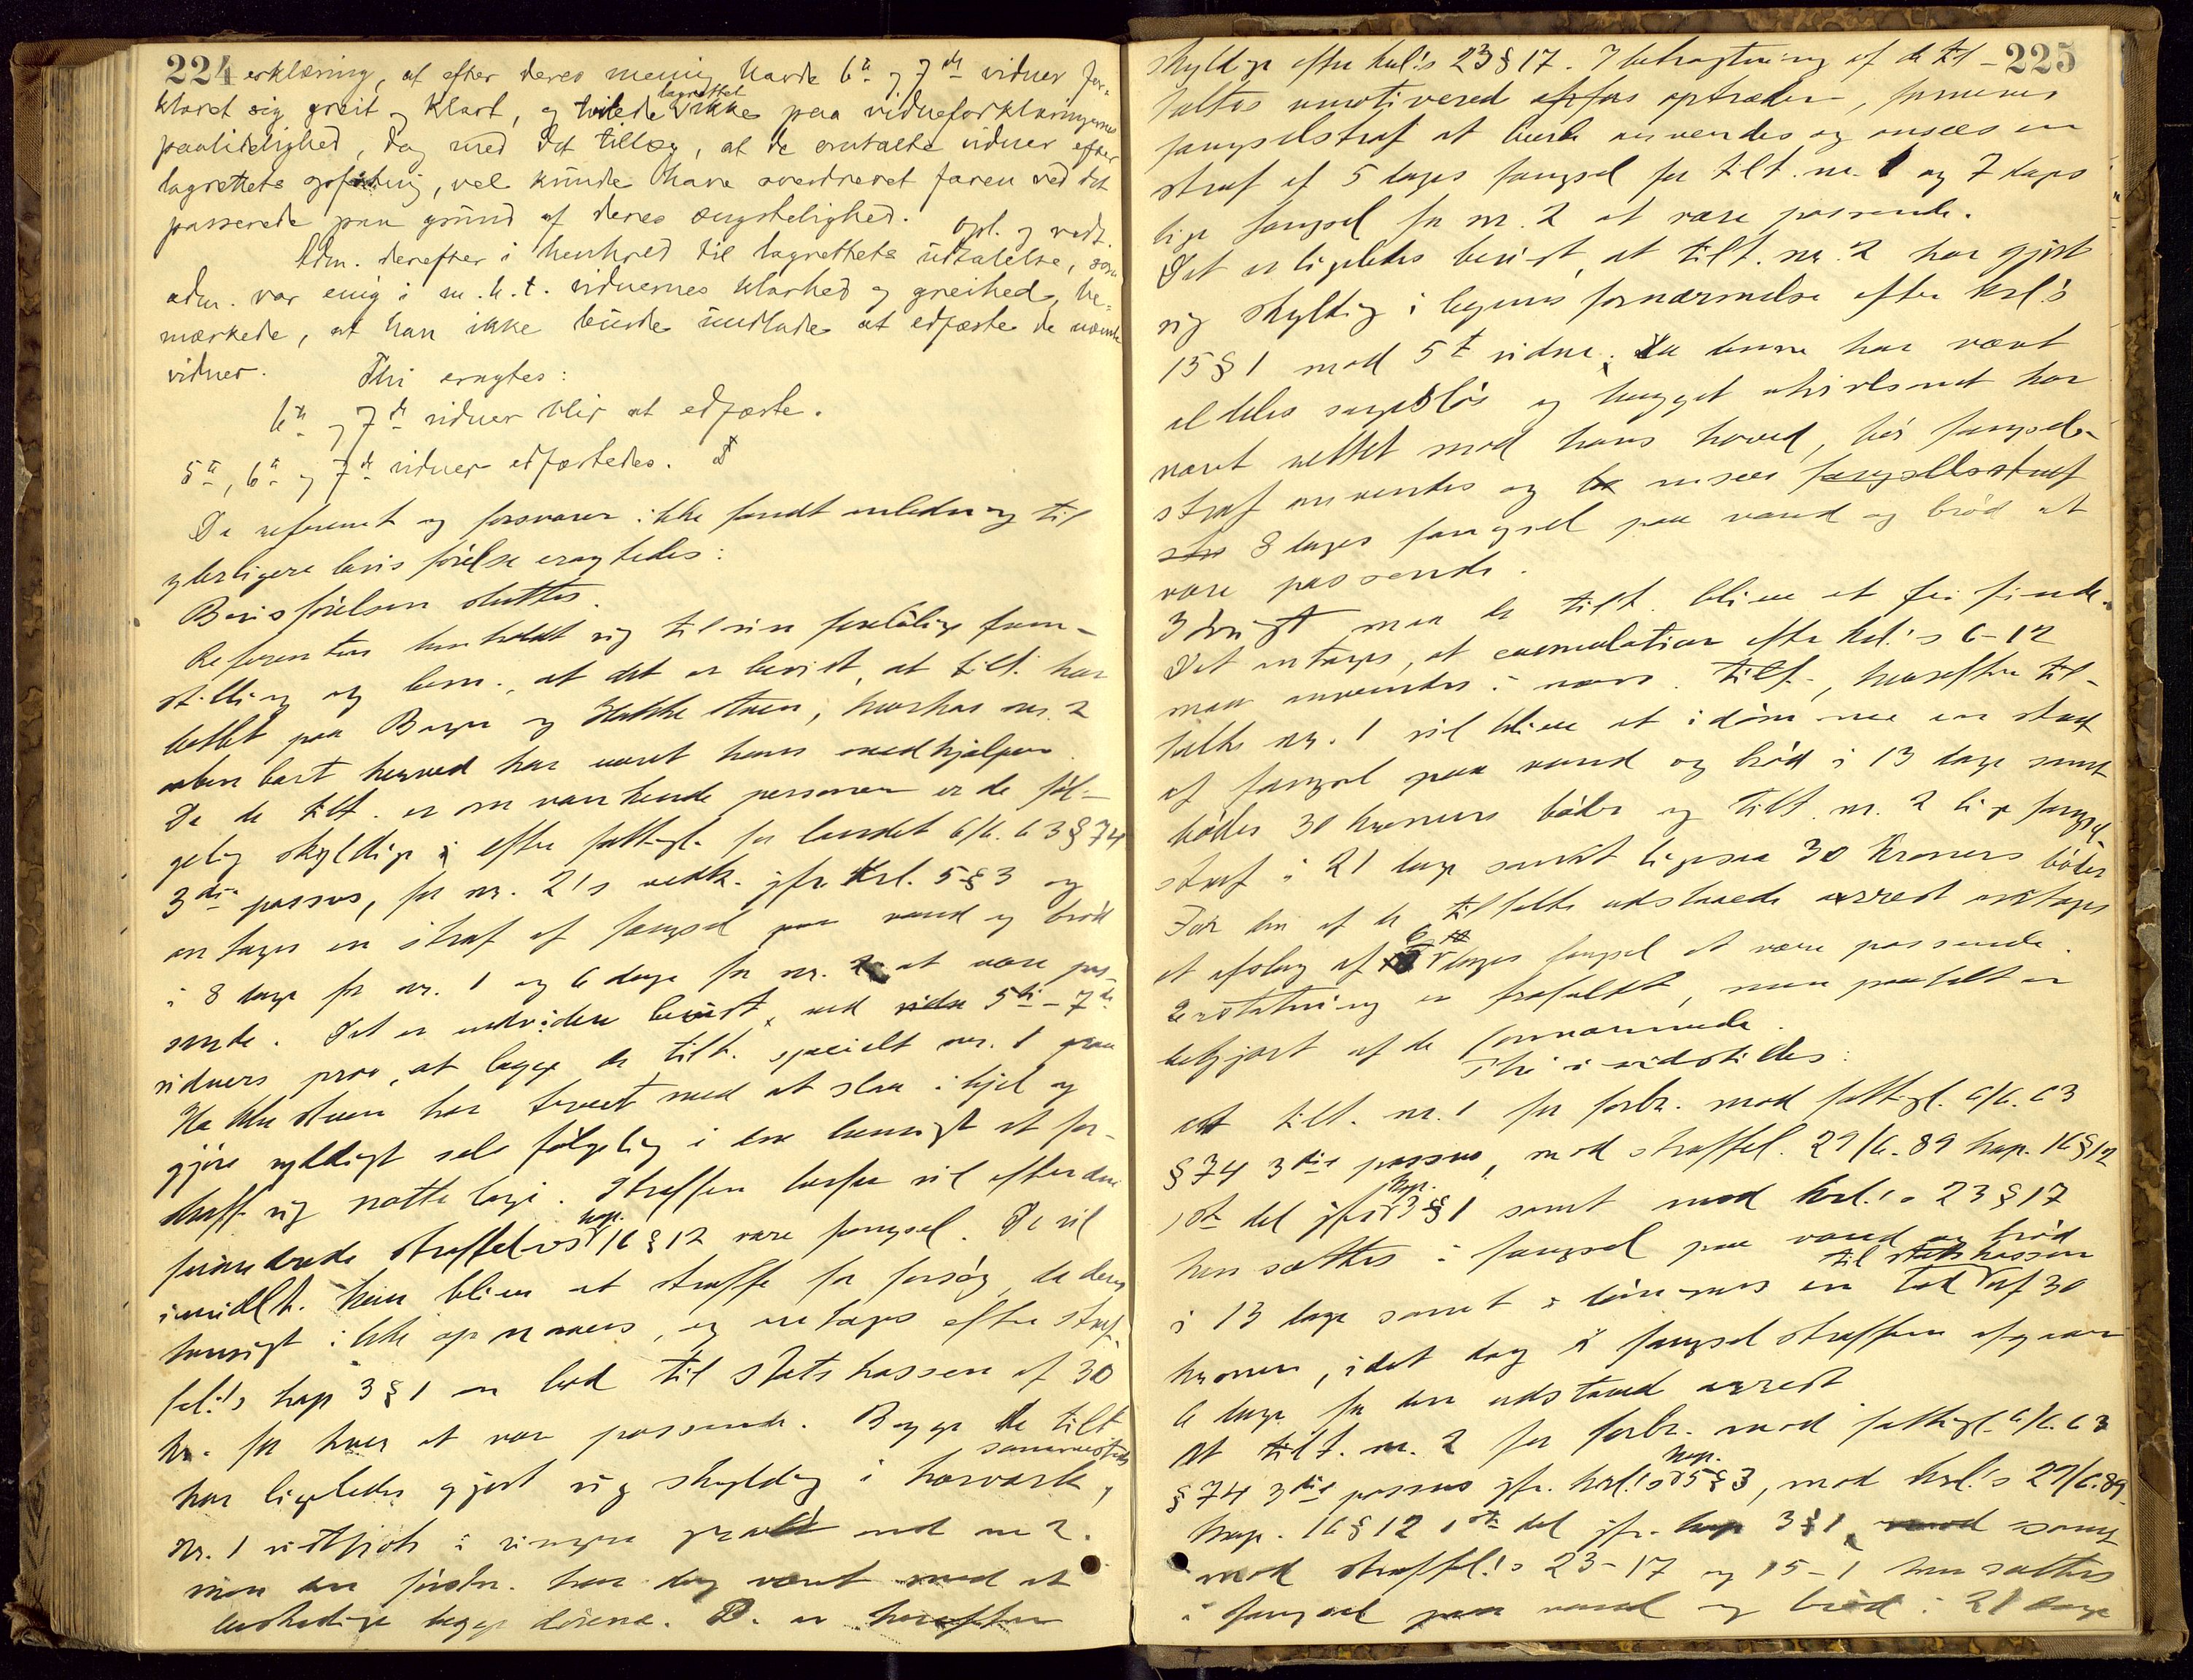 224
erklæring, at efter deres mening havde 6te og 7de vidner for-
klaret sig greit og klart, og tvilede lagrettet ikke paa vidneforklaringernes
paalidelighed, dog med det tillæg, at de omtalte vidner efter
lagrettets opfatning, vel kunde have overdrevet faren ved det
passerede paa grund af deres ængstelighed. Opl. og vedt.
Adm. derefter i henhold til lagrettets udtalelse, som
adm. var enig i m.h.t. vidnernes klarhed og greihed, be-
mærkede, at han ikke burde undlade at edfæste de nævnte
vidner. Thi eragtes:
6te og 7de vidner blir at edfæste.
5te, 6te og 7de vidner edfæstedes.
Da referent og forsvarer ikke fandt anledning til
yderligere bevisførelse eragtedes:
Bevisførelsen sluttes.
Referenten henholdt sig til sin foreløbige frem-
stilling og bem., at det er bevist, at tilt. har
betlet paa og Hakkestuen, hvorhos nr. 2
aabenbart herved har været hans medhjælper
Da de tilt. er omvankende personer er de føl-
gelig skyldige efter fattigl. for landet 6/6.63 § 74
3die passus, for nr. 2's vedk. jfr. krl. 5 § 3 og
antages en straf af fængsel paa vand og brød
i 8 dage for nr. 1 og 6 dage for nr. 2 at være pas-
sende. Det er endvidere bevist, ved 5te - 7de
vidners prov, at begge de tilt. specielt nr. 1 paa
Hakkestuen har truet med at slaa ihjel og
gjøre ryddigt selv følgelig i den hensigt at for-
skaffe sig natteleie. Straffen herfor vil efter den
forandrede straffelovs kap. 16 § 12 være fængsel. De vil
imidlt. kun blive at straffe for forsøg, da deres
hensigt ikke opnaaes, og antages efter straf-
fel.'s kap 3 § 1 en bod til Statskassen af 30
kr. for hver at være passende. Begge de tilt
har ligeledes gjort sig skyldig i hærværk sammesteds,
Nr. 1 vistnok i ringere grad end nr 2.
men den førstn. har dog været med at
beskadige begge dørene. De er herefter
225
skyldige efter krl.'s 23 § 17. I betragtning af de til-
taltes umotiverede optræden, formenes
fængselstraf at burde anvendes og ansees en
straf af 5 dages fængsel for tilt. nr. 1 og 7 dages
lige fængsel for nr. 2 at være passende.
Det er ligeledes bevist, at tilt. nr. 2 har gjort
sig skyldig i legems fornærmelse efter krl's
15 § 1 mod 5te vidne. Da denne har været
aldeles sagesløs og hugget utvivlsomt har
været rettet mod hans hoved, bør fængsels-
straf anvendes og ansees fængselsstraf
8 dages fængsel paa vand og brød at
være passende.
Idvrigt maa de tilt. blive at frifinde.
Det antages, at cumulation efter krl.'s 6-12
maa anvendes i nærv. tilf., hvorefter til-
talte nr. 1 vil blive at idømme en straf
af fængsel paa vand og brød i 13 dage samt
bødes 30 kroners bøder og tilt. nr. 2 lige fængsel
straf i 21 dage samt ligesaa 30 kroners bøder
For den af de tiltalte udstaaede arrest antages
et afslag af 6 dages fængsel at være passende.
Erstatning er frafaldt, men paatalt er
begjært af de fornærmede.
Thi indstilles:
at tilt. nr. 1 for forbr. mod fattigl. 6/6.63
§ 74 3die passus, mod straffel. 29/6.89 kap. 16 § 12
1ste del jfr. kap. 3 § 1 samt mod krl.'s 23 § 17
hensættes i fængsel paa vand og brød
i 13 dage samt idømmes en bod til statskassen af 30
kroner, idet dog i fængselstraffen afgaar
6 dage for den udstaaede arrest
At tilt. nr. 2 for forbr. mod fattigl. 6/6.63
§ 74 3die passus jfr. krl.'s kap. 5 § 3, mod krl.'s 29/6.89
kap. 16 § 12 1ste del jfr. kap 3 § 1, mod samt
mod straffel.'s 23-17 og 15-1 hensættes
i fængsel paa vand og brød i 21 dage